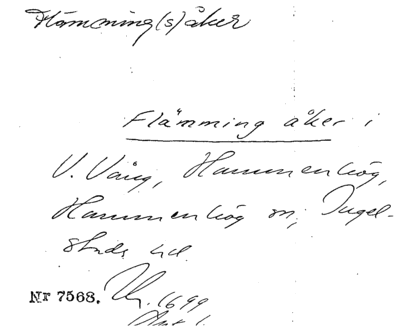 Flämming(s)åker
Flämming åker i
V. Vång, Hammenhög,
Hammenhög sn, Ingel-
stads hd.
Nr 7568. 1699